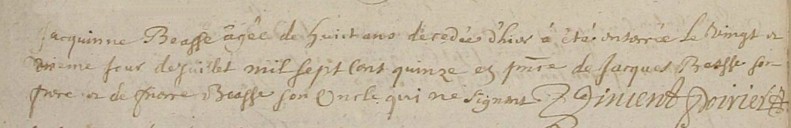 Jacquinne Beasse âgée de huict ans décédée d'hier a été enterrée le vingt et
unieme jour de juillet mil sept cent quinze en pnce de Jacques Beasse son
frere et de Pierre Beasse son oncle qui ne signent Vincent Poirier